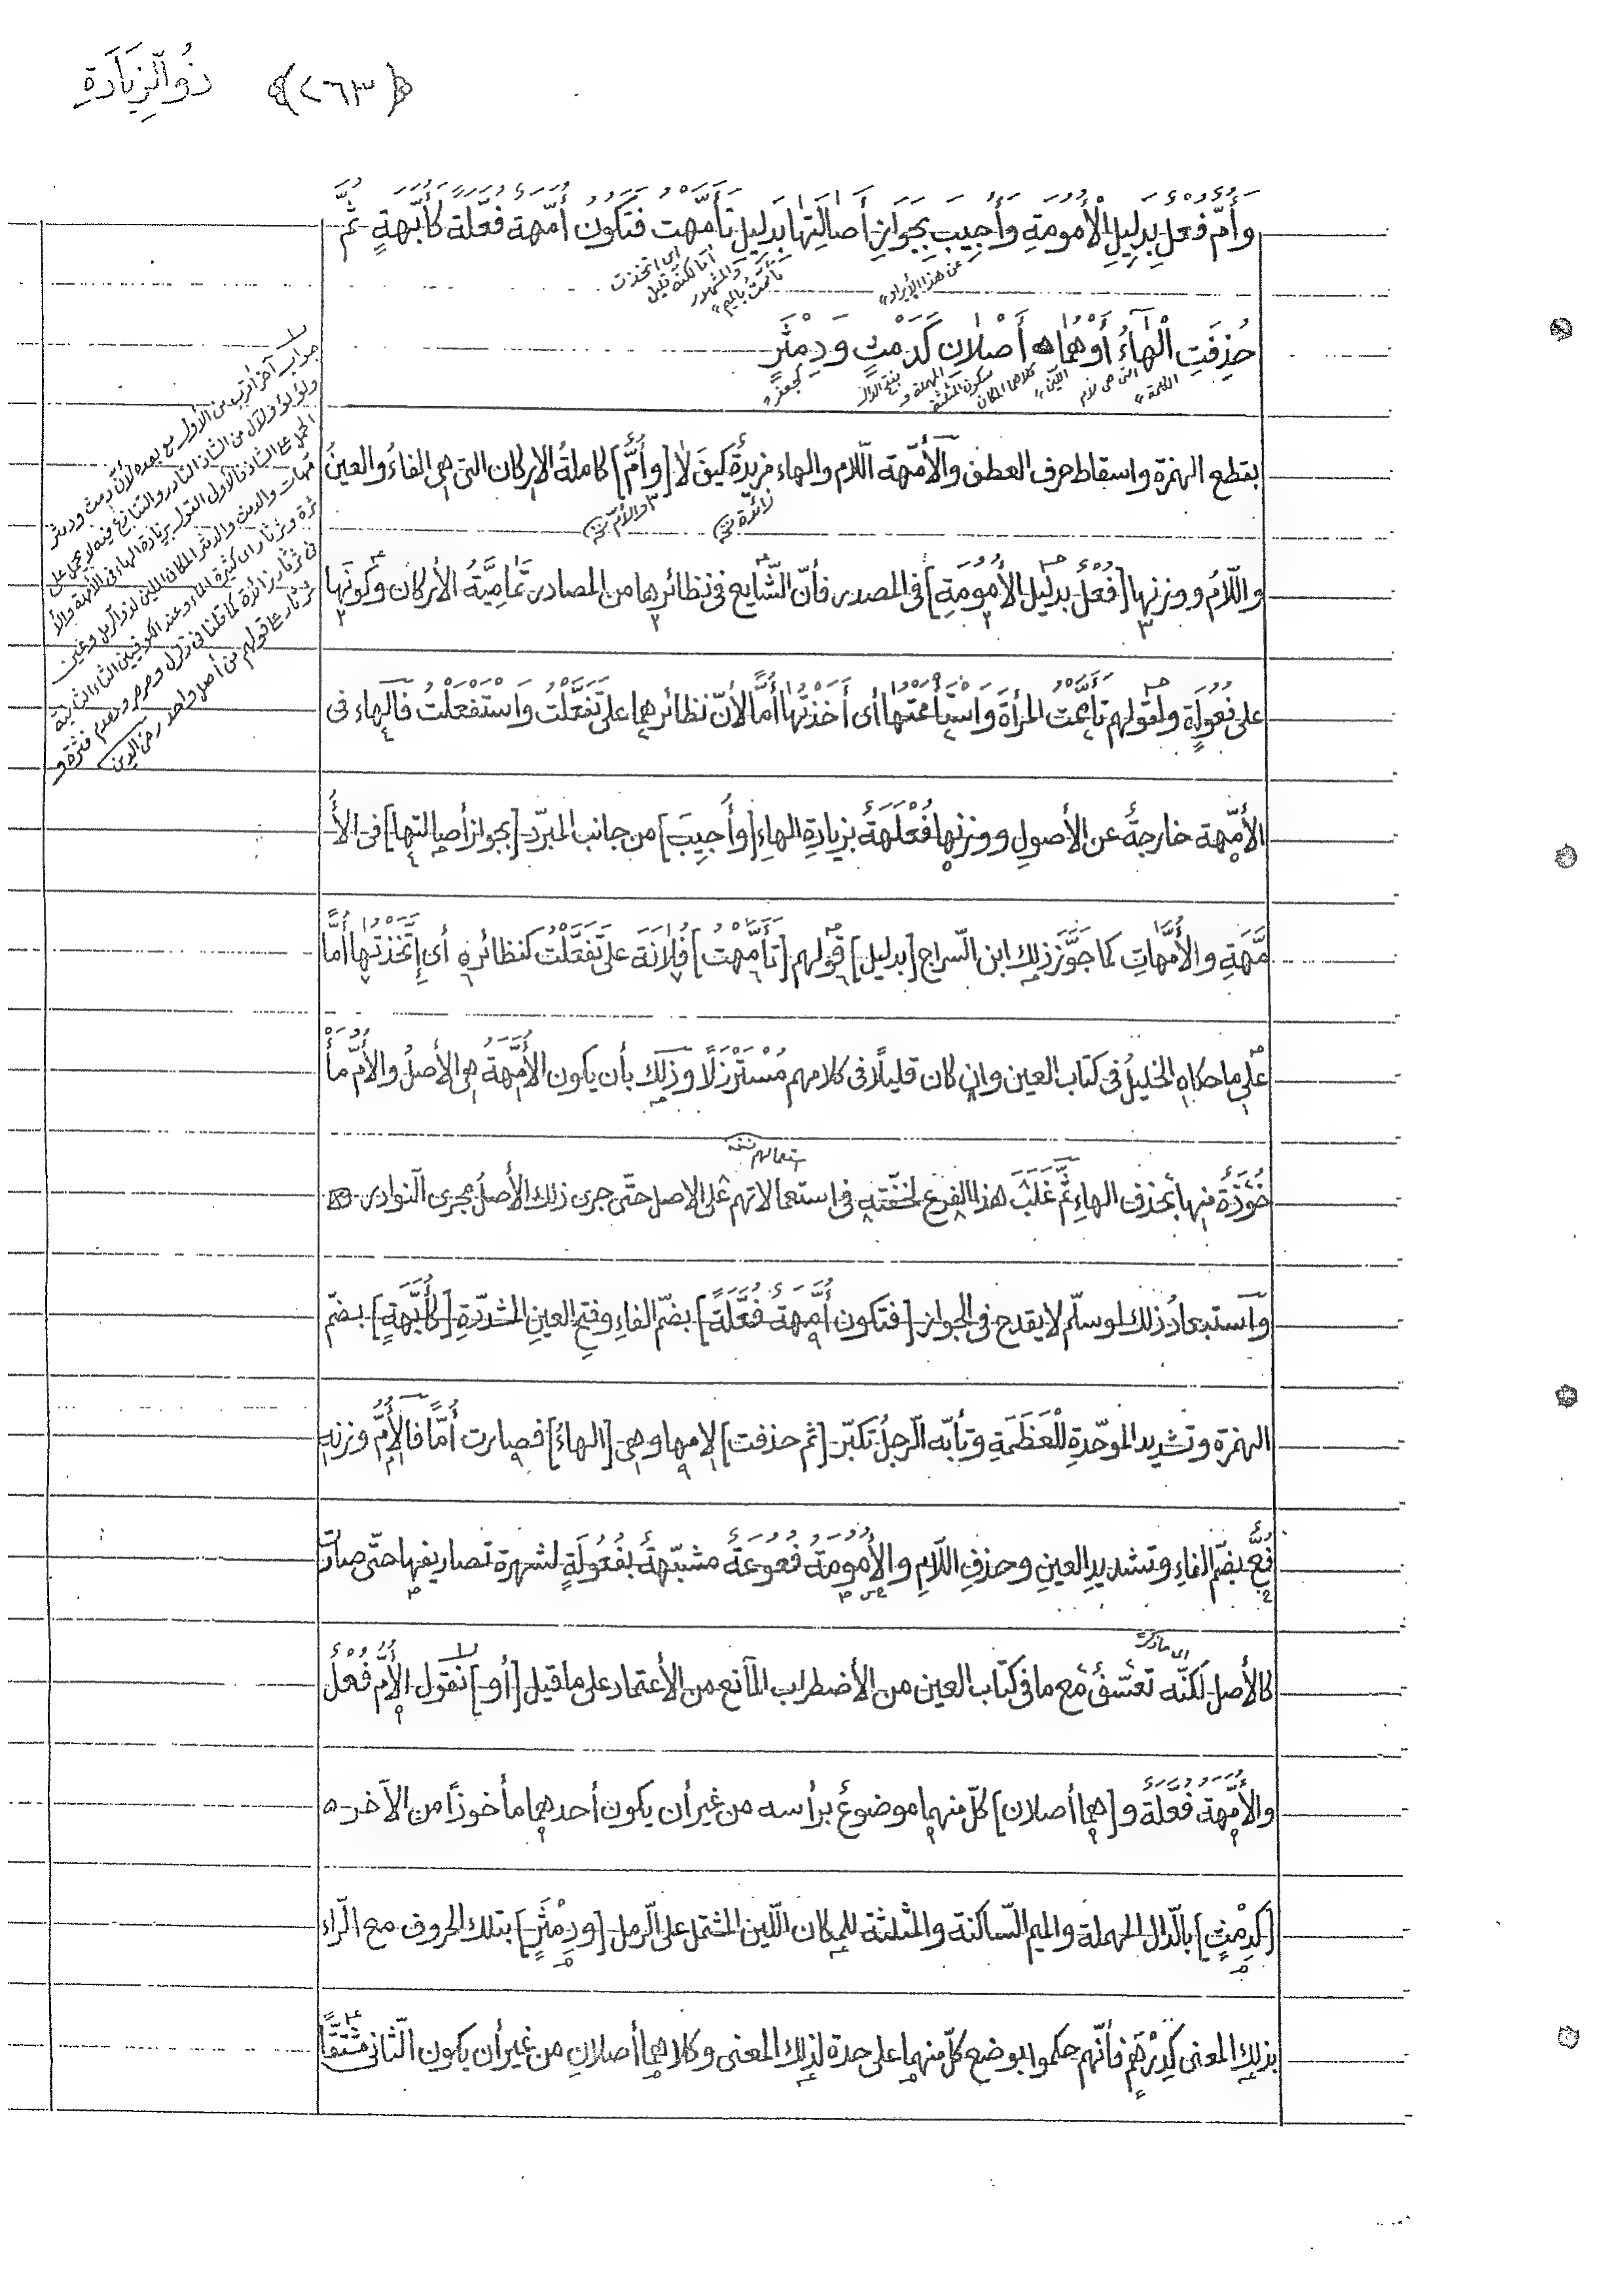 ﴿٢٦٣﴾ ذُو الزِّيَادَةِ
وَأُمٌّ فُعْلٌ بِدَلِيلِ الْأُمُومَةِ وَأُجِيبَ بِجَوَازِ أَصَالَتِهَا بِدَلِيلِ تَأَمَّهَتْ فَتَكُونُ أُمَّهَةٌ فُعَّلَةً كَأُبَّهَةٍ ثُمَّ
عن هذا الإيراد
أى اتخذت
أما لكنه قليل
والمشهور
تأممت بالميم
حُذِفَتِ الْهَاءُ أَوْ هُمَا أَصْلَانِ كَدَمْثٍ وَدِمَثْرٍ
التى هى لام
الكلمة
اللين
كلاهما المكان
سكون المثلثة
المهملة و
بفتح الدال
كجعفر
بقطع الهمزة واسقاط حرف العطف والأمّهة اللّام والهاء مزيدةٌ كيف لا [وأُمٌّ] كاملةُ الاركان التى هى الفاءُ والعينُ
زائدة خ
والأم خ
واللّامُ ووزنها [فُعْلٌ بدليل الأُمُومَةِ] فى المصدر فأنّ الشّايع فى نظائرها من المصادر تَمَامِيَّةُ الأركان وكونها
على فُعُولَةٍ ولقولهم تأَمَّمْتُ المرأةَ وَاسْتَأْمَمْتُها أى أَخَذْتُهَا أُمًّا لأنّ نظائرهما على تَفَعَّلْتُ وَاسْتَفْعَلْتُ فالهاء فى
الأمّهة خارجةٌ عن الأصولِ ووزنها فُعْلَهَةٌ بزيادةِ الهاءِ [وأُجِيبَ] من جانب المبرّد [بجواز أصالتها] فى الأُ
مَّهَةِ والأُمَّهاتِ كما جَوَّزَ ذلك ابن السّراج [بدليل] قولهم [تَأَمَّهْتُ] فُلَانَةَ على تَفَعَّلْتُ كنظائره أى إِتَّخَذْتُهَا أُمًّا
على ما حكاه الخليلُ فى كتاب العين وان كان قليلًا فى كلامهم مُسْتَرْذَلًا وذلك بأن يكون الأُمَّهَةُ هى الأصلُ والأُمُّ مأْ
استعمالهم نسخه
خُوذَةٌ منها بحذف الهاءِ ثُمَّ غَلَبَ هذا الفرع لخفّته فى استعمالاتهم على الاصل حتّى جرى ذلك الأصلُ مجرى النوادر
واستبعادُ ذلك لو سلّم لا يقدح فى الجواز [فتكون أُمَّهَةٌ فُعَّلَةً] بضمّ الفاءِ وفتحِ العينِ المشدّدَةِ [كَأُبَّهَةٍ] بضمّ
الهمزة وتشديد الموحّدةِ لِلْعَظَمَةِ وتأبّه الرّجلُ تكبّر [ثم حذفت] لامها وهى [الهاءُ] فصارت أُمًّا فالأُمُّ وزنه
فُعٌّ بضمّ الفاءِ وتشديدِ العينِ وحذفِ اللّامِ والأُمُومَةُ فُعُوعَةٌ مشبّهةٌ بفُعُولَةٍ لشهرة تصاريفها حتّى صارت
أى ما ذكرت
كالأصل لكنّه تعسّفٌ مع ما فى كتاب العين من الأضطراب المانع من الأعتماد على ما قيل [أو] نقول الأُمُّ فُعْلٌ
والأُمَّهة فُعَّلَةٌ و [هما أصلان] كلّ منهما موضوعٌ برأسه من غير أن يكون أحدهما مأخوذًا من الآخر
[كَدِمْثٍ] بالدّال المهملة والميم السّاكنة والمثلثة للمكان اللّين المشتمل على الرّمل [ودِمَثْرٍ] بتلك الحروف مع الرّاء
بذلك المعنى كَدِرْهَمٍ فأنّهم حكموا بوضع كلّ منهما على حدة لذلك المعنى وكلاهما أصلانِ من غير أن يكون الثّانى مُشْتَقًّا
جواب آخر أقرب من الأول مع بعده لأنّ دمث ودمثر
ولؤلؤ ولآل من الشاذ النادر والمتنازع فيه لا يحمل على
الحمل على الشاذ فالأولى القول بزيادة الهاء فى الأمهة والأ
مهات والدمث والدمثر المكان اللين ذو الرمل وعين
ثرة وثرثار أى كثيرة الماء وعند الكوفيين الثاء الثانية
فى ثرثار زائدة كما قلنا فى زلزل وصرصر ودمدم فثرة و
ثرثار على قولهم من أصل واحد رضى الدين